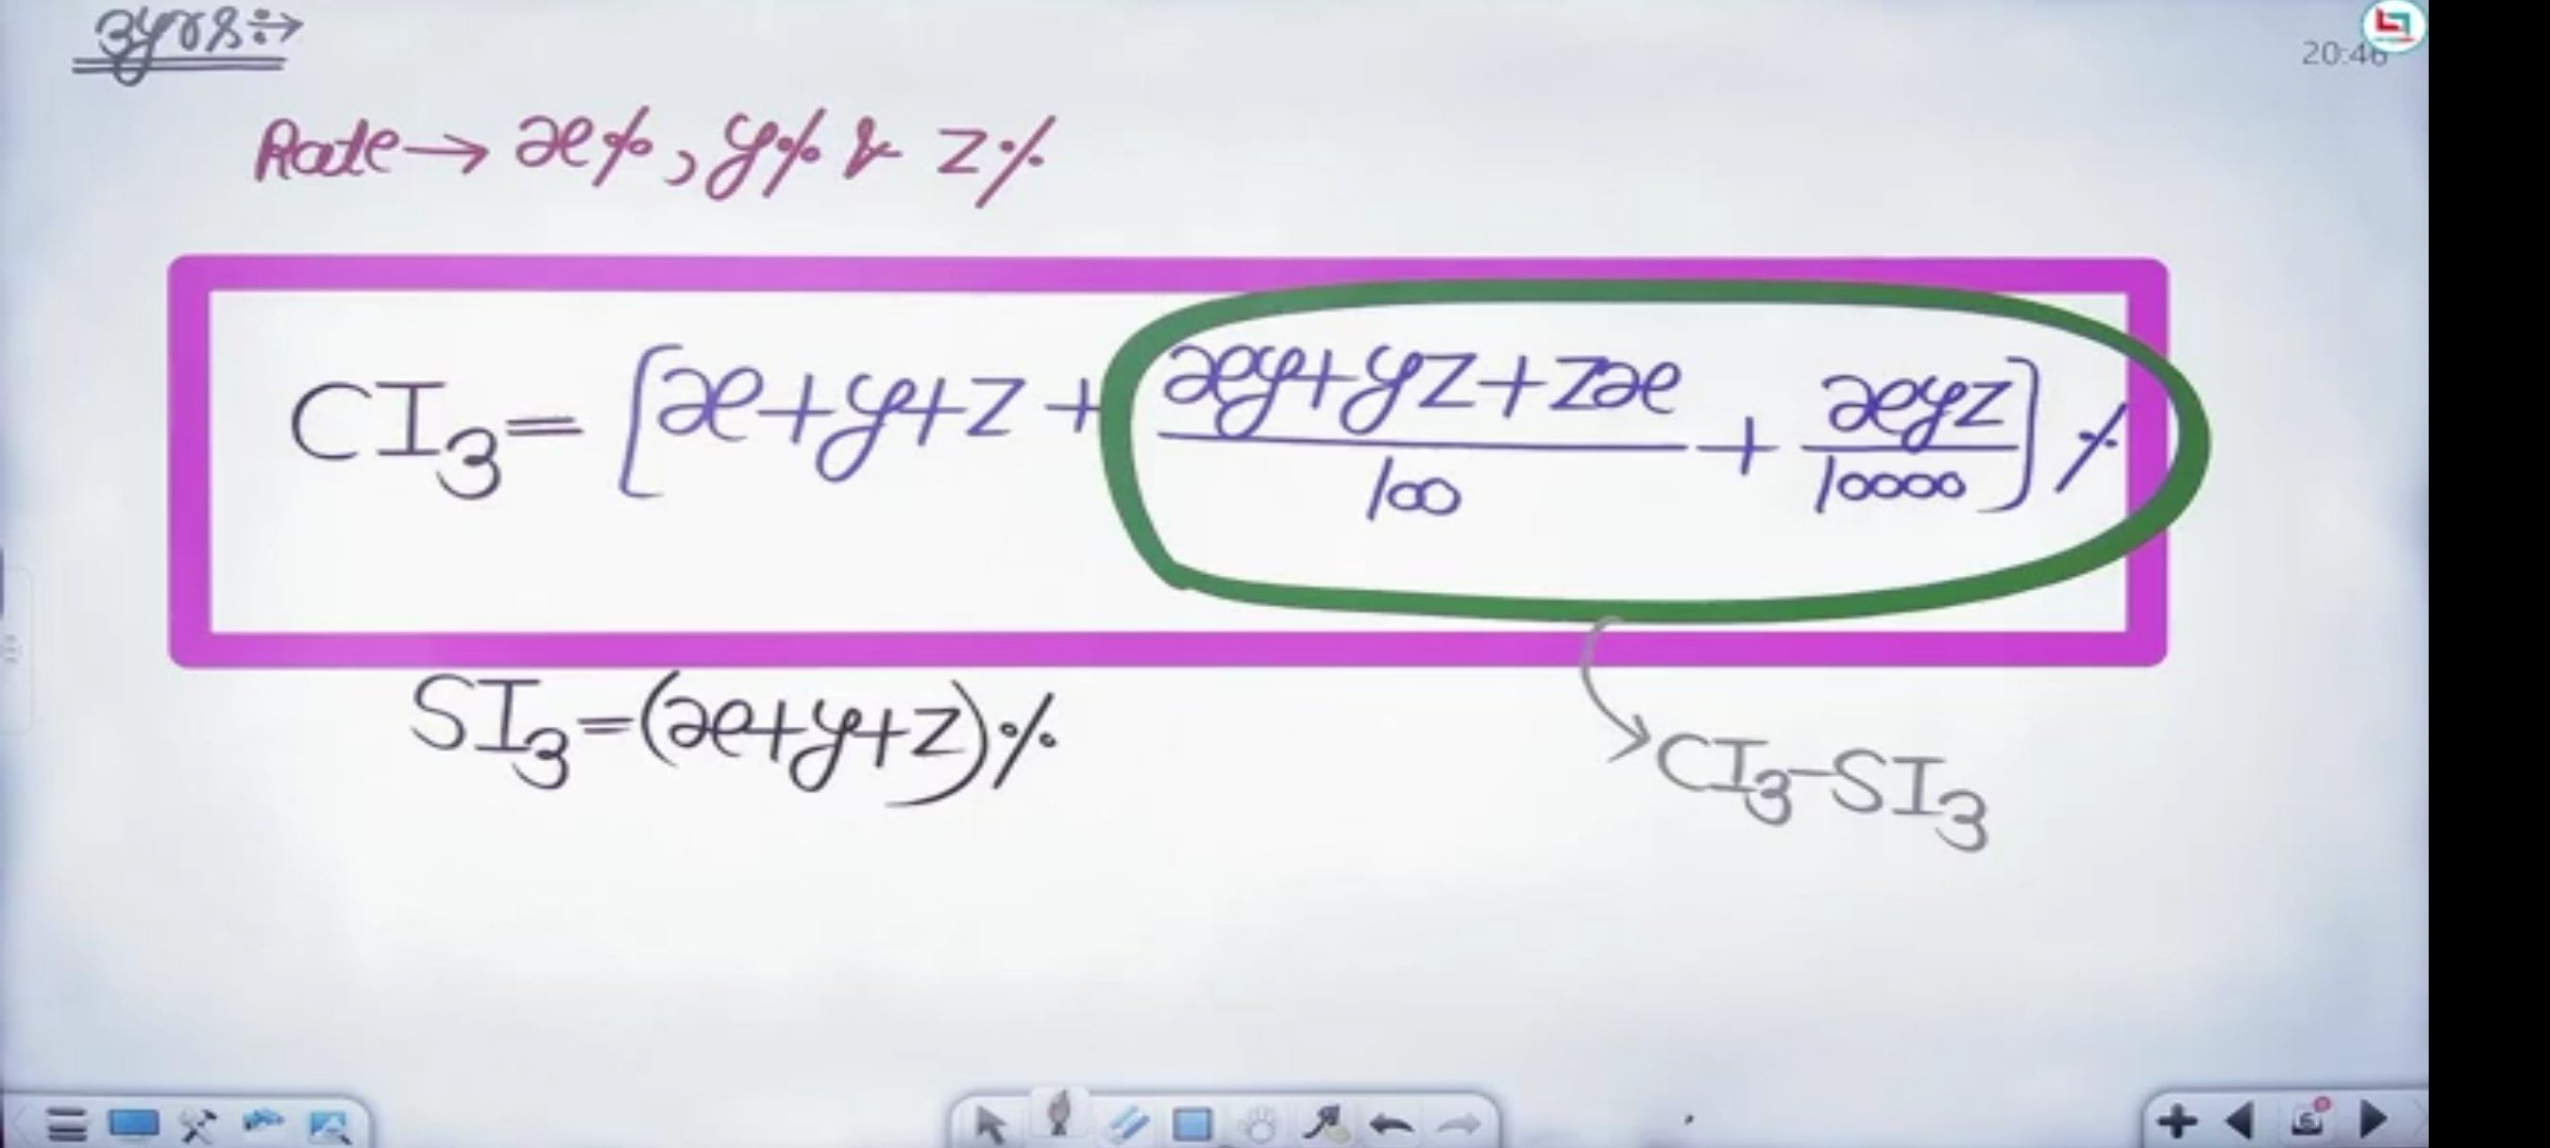 3yrs:→
20:46
Rate → x%, y% & z%
CI₃ = [x+y+z + (xy+yz+zx)/100 + xyz/10000] %
SI₃ = (x+y+z)%
CI₃-SI₃